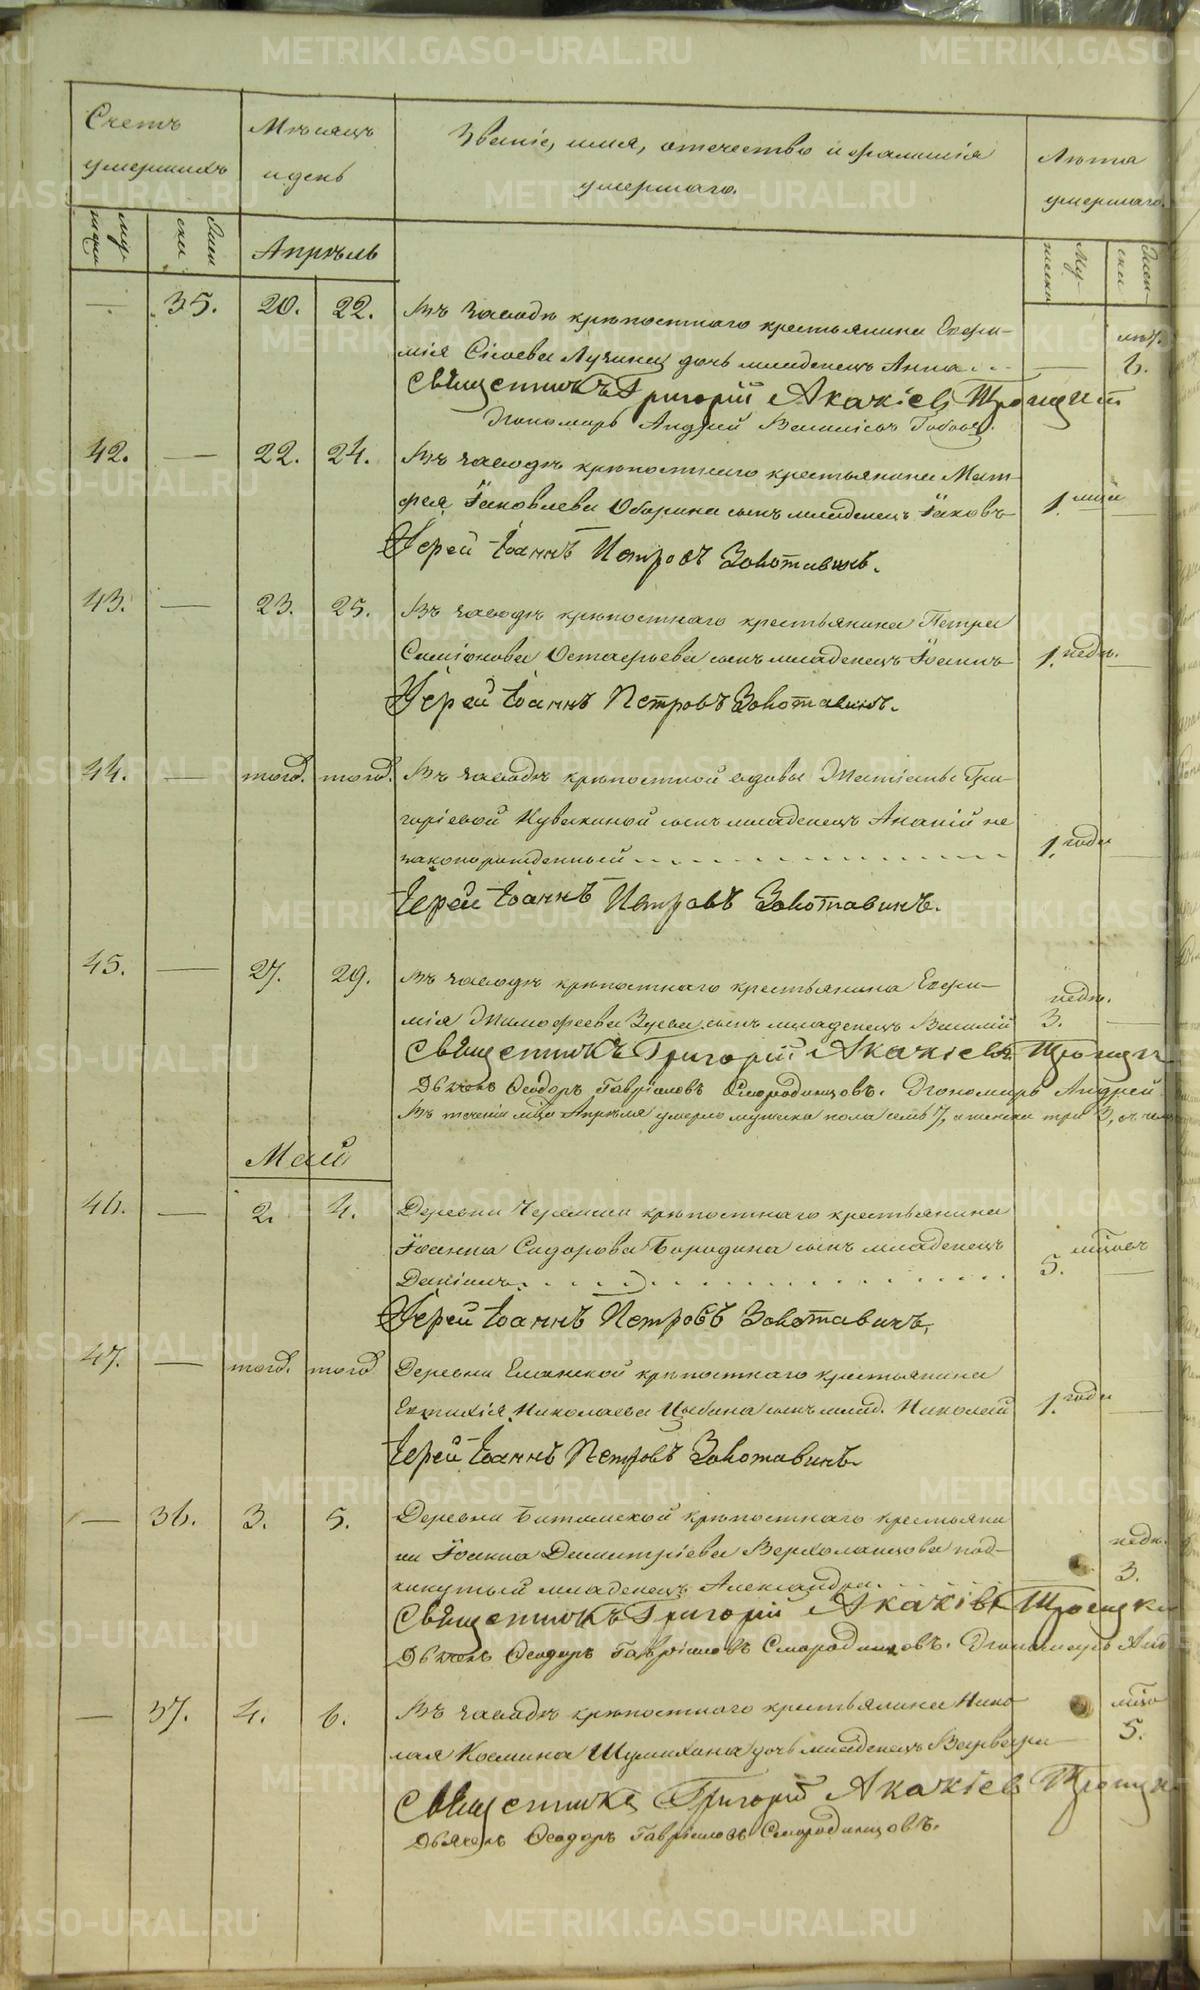 METRIKI.GASO-URAL.RU
Счетъ умершихъ
Мѣсяцъ и день
Званіе, имя, отчество и фамилія умершаго.
Лѣта умершаго.
Апрѣль
— 35. 20. 22. Въ заводѣ крѣпостнаго крестьянина Евфи-
мія Сысоева Лузина дочь младенецъ Анна 6.
Священникъ Григорій Акакіевъ Троицкій
Пономарь Андрей
42. — 22. 24. Въ заводѣ крѣпостнаго крестьянина Мат-
фея Іаковлева Оборина сынъ младенецъ Іаковъ 1.
Іерей Іоаннъ Петровъ Золотавинъ.
43. — 23. 25. Въ заводѣ крѣпостнаго крестьянина Петра
Симіонова Остафьева сынъ младенецъ Іоаннъ 1. недѣ.
Іерей Іоаннъ Петровъ Золотавинъ.
44. — тогд. тогд. Въ заводѣ крѣпостной вдовы Татіаны Гри-
горіевой Кувакиной сынъ младенецъ Ананій не
законорожденный 1. года
Іерей Іоаннъ Петровъ Золотавинъ.
45. — 27. 29. Въ заводѣ крѣпостнаго крестьянина Евфи-
мія Тимофеева Зуева сынъ младенецъ Василій 3. недѣ.
Священникъ Григорій Акакіевъ
Дьяконъ Ѳеодоръ Гавріиловъ Смородинцовъ. Пономарь Андрей
Въ теченіи мѣца Апрѣля умерло мужска пола семь 7, а женска три 3,
Май
46. — 2. 4. Деревни Черемши крѣпостнаго крестьянина
Іоанна Сидорова Бородина сынъ младенецъ
Даніилъ 5.
Іерей Іоаннъ Петровъ Золотавинъ.
47. — тогд. тогд Деревни Еланской крѣпостнаго крестьянина
Евтихія Николаева Цыбина сынъ млад. Николай 1. года
Іерей Іоаннъ Петровъ Золотавинъ.
— 36. 3. 5. Деревни Битимской крѣпостнаго крестьяни
на Іоанна Димитріева Верхоланцова под-
кинутый младенецъ Александра. 3. недѣ.
Священникъ Григорій Акакіевъ
Дьяконъ Ѳеодоръ Гавріиловъ Смородинцовъ. Пономарь Анд
— 37. 4. 6. Въ заводѣ крѣпостнаго крестьянина Нико
лая Космина Шумихина дочь младенецъ Варвара 5.
Священникъ Григорій Акакіевъ
Дьяконъ Ѳеодоръ Гавріиловъ Смородинцовъ.